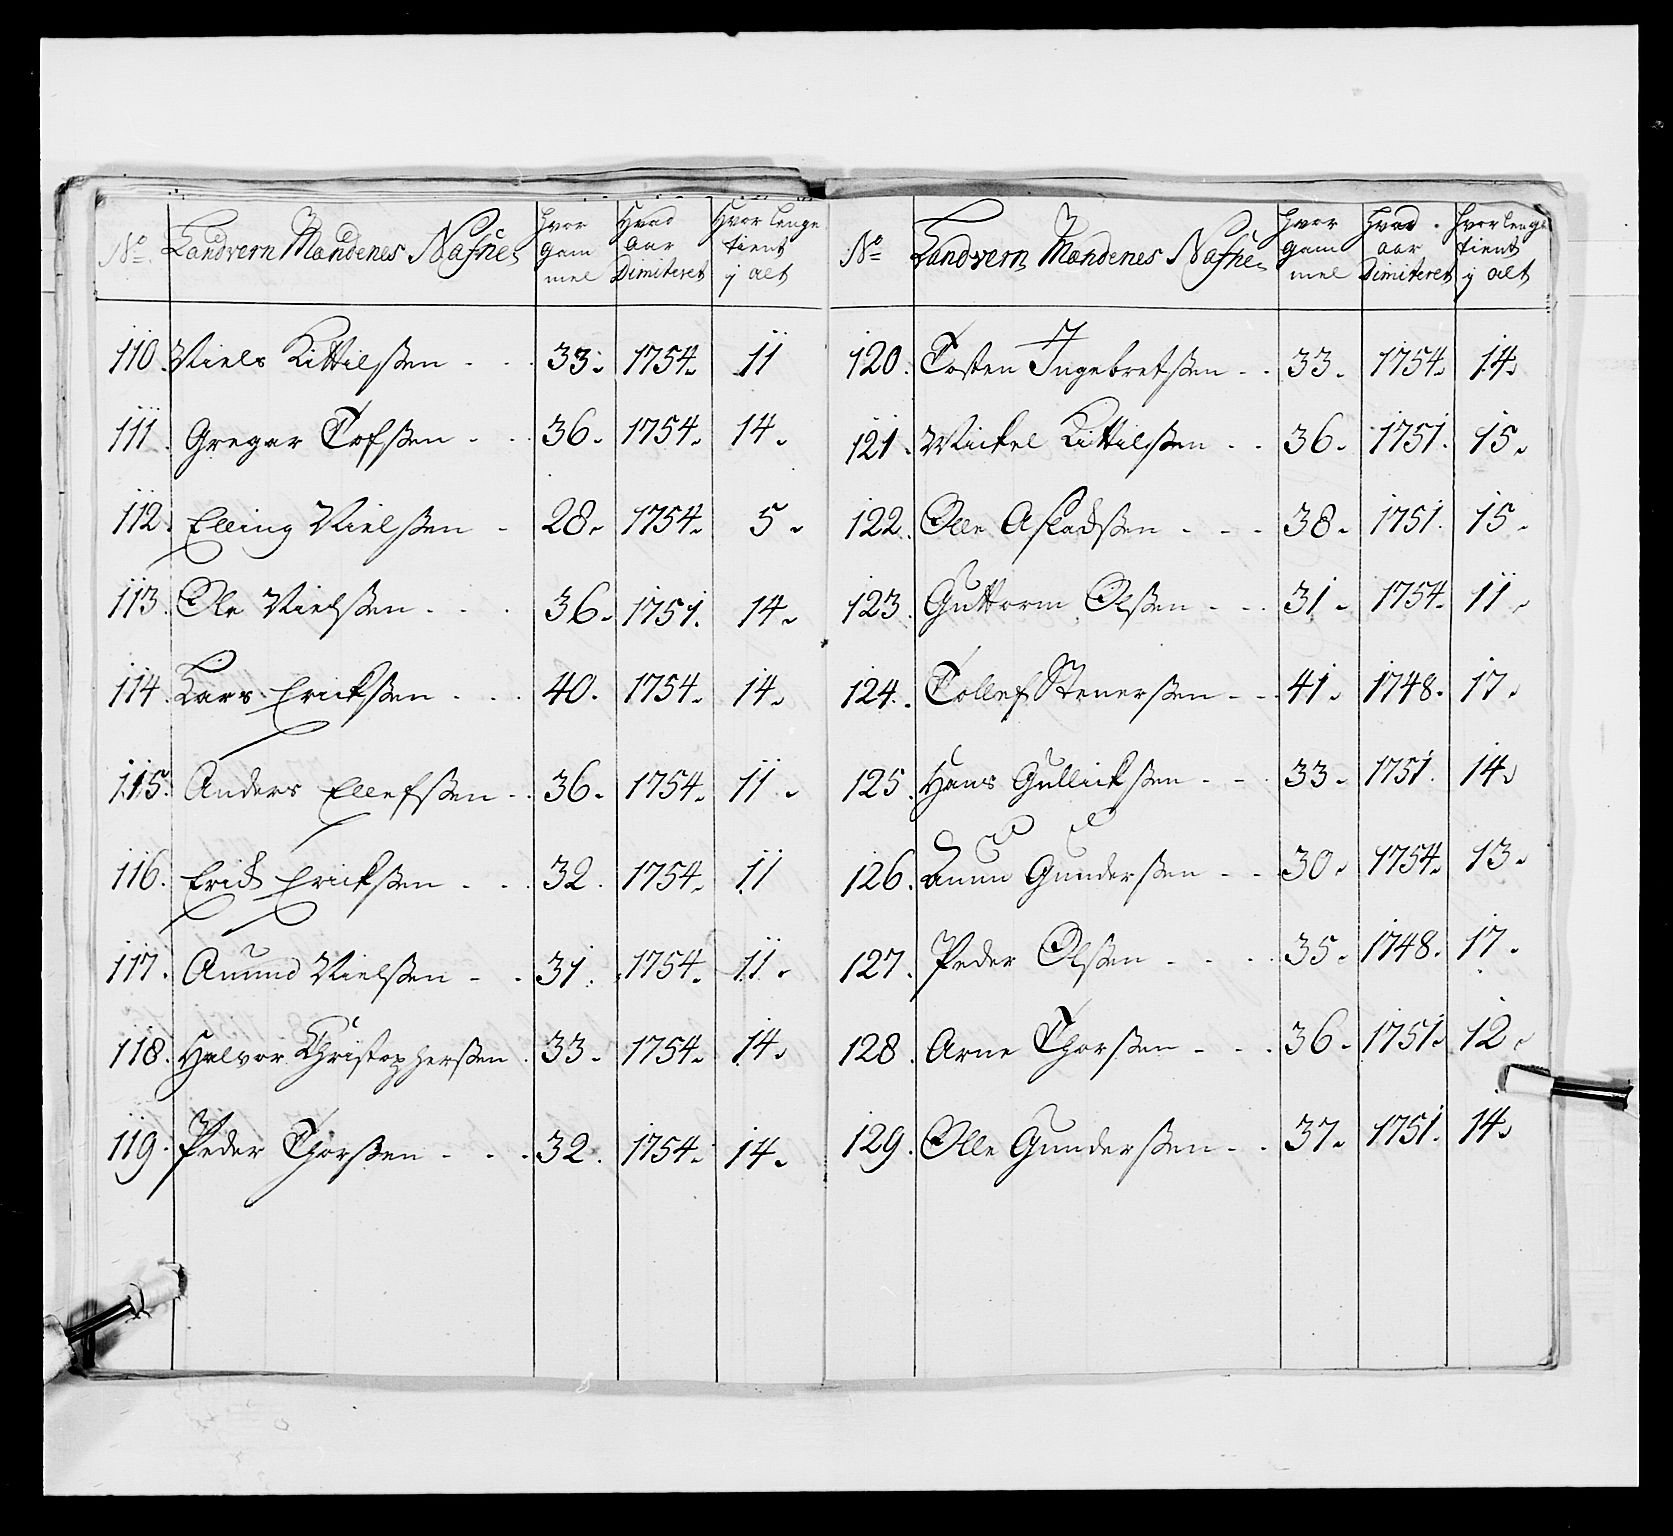 No. Landvern Mandenes Nafne Hvor gammel Hvad aar Dimiteret Hvor lenge tient j alt
110. Niels Kittilßen - - 33. 1754. 11
111. Gregar Tofßen - - 36. 1754. 14.
112. Elling Nielßen - 28. 1754. 5.
113. Ole Nielßen - - - 36. 1751. 14.
114. Lars Erickßen - - - 40. 1754. 14.
115. Anders Ellefßen - - 36. 1754. 11.
116. Erick Erickßen - - - 32. 1754. 11
117. Amund Nielßen - - 31. 1754. 11.
118. Halvor Christopherßen - 33. 1754. 14.
119. Peder Thorßen - - - 32. 1754. 14.
No. Landvern Mandenes Nafne Hvor gammel Hvad aar Dimiteret Hvor lenge tient j alt
120. Tosten Ingebretßen - - 33. 1754. 14.
121. Mickel Kittilßen - - 36. 1751. 15.
122. Olle Asladßen - - - 38. 1751. 15.
123. Guttorm Olßen - - - 31. 1754. 11.
124. Tollef Stenerßen - - 41. 1748. 17.
125. Hans Gullickßen - - - 33. 1751. 14.
126. Gunderßen - - 30. 1754. 13.
127. Peder Olßen - - - - 35. 1748. 17.
128. Arne Thorßen - - - 36. 1751. 12.
129. Olle Gunderßen - - 37. 1751. 14.